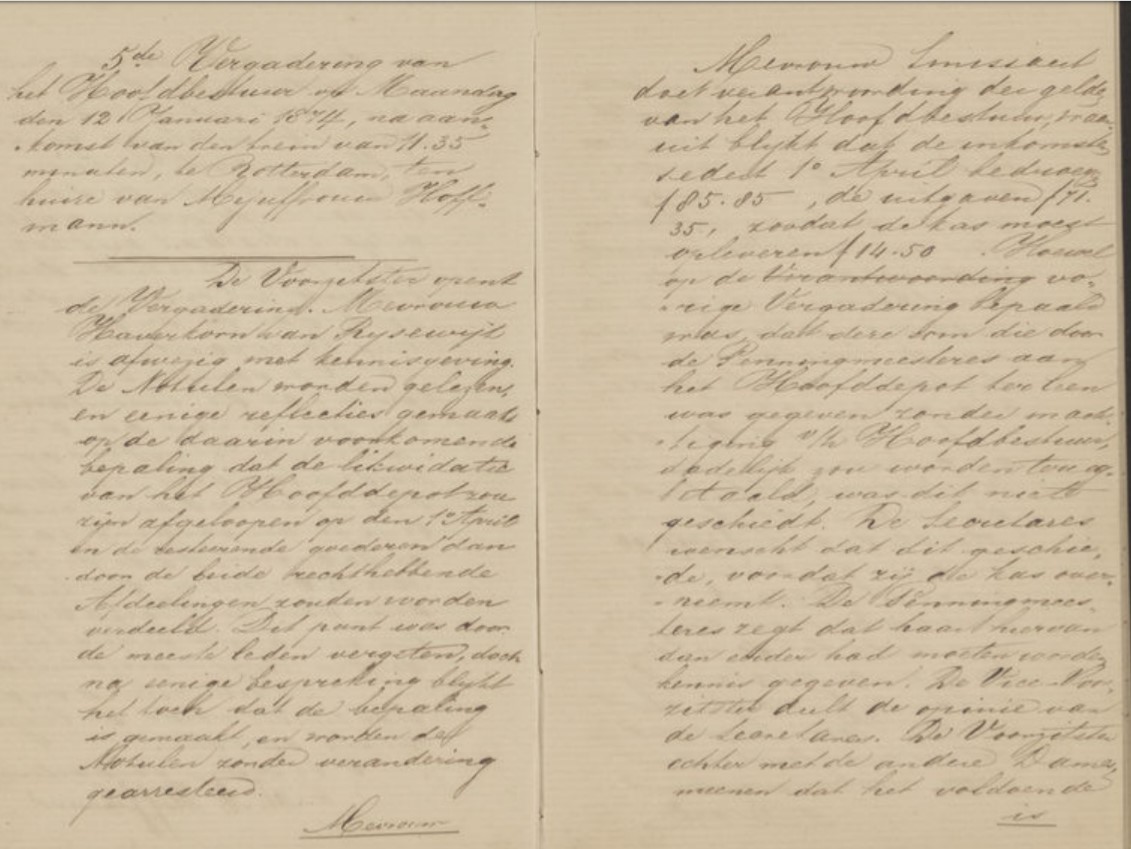 5de Vergadering van
het Hoofdbestuur op Maandag
den 12 Januari 1874, na aan-
komst van den trein van 11.35
minuten, te Rotterdam, ten
huize van Mejuffrouw Hoff-
mann.
De Voorzitster opent
de Vergadering. Mevrouw
Haverkorn van Rysewijk
is afwezig met kennisgeving.
De Notulen worden gelezen,
en eenige reflecties gemaakt
op de daarin voorkomende
bepaling dat de likwidatie
van het Hoofddepot zou
zijn afgeloopen op den 1e April
en de resteerende goederen dan
door de beide rechthebbende
Afdeelingen zouden worden
verdeeld. Dit punt was door
de meeste leden vergeten, doch
na eenige bespreking blijkt
het toch dat de bepaling
is gemaakt, en worden de
Notulen zonder verandering
gearresteerd.
Mevrouw
Mevrouw
doet verantwoording der gelden
van het Hoofdbestuur, waar-
uit blijkt dat de inkomsten
sedert 1e April bedroegen
f 85.85, de uitgaven f 71.
35, zoodat de kas moest
opleveren f 14.50. Hoewel
op de verantwoording vo-
rige Vergadering bepaald
was, dat deze som die door
de Penningmeesteres aan
het Hoofddepot ter leen
was gegeven zonder mach-
tiging v/h Hoofdbestuur,
dadelijk zou worden terug-
betaald, was dit niet
geschiedt. De Secretares
wenscht dat dit geschie-
de, voordat zij de kas over-
neemt. De Penningmees-
teres zegt dat haar hiervan
dan eerder had moeten worden
kennis gegeven. De Vice-Voor-
zitster deelt de opinie van
de Secretares. De Voorzitster
echter met de andere Dames,
meenen dat het voldoende
is